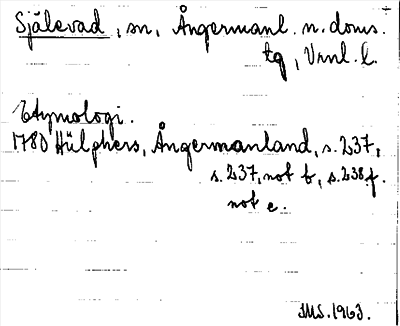 Själevad, sn, Ångermanl. n. doms.
tg, Vrnl. l.
Etymologi.
1780 Hülphers, Ångermanland, s. 237,
s. 237, not b, s. 238 f.
not e.
JMS. 1963.